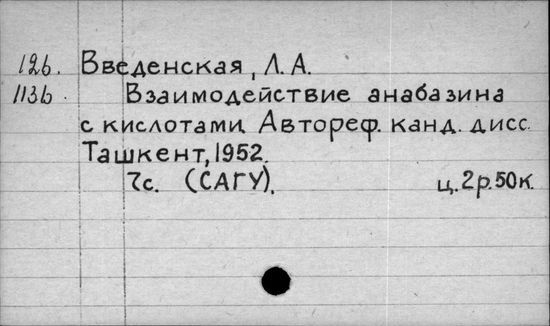 12б. Введенская, Л. А.
113б. Взаимодействие анабазина
с кислотами. Автореф. канд. дисс.
Ташкент, 1952.
7с. (САГУ). ц. 2р. 50к.